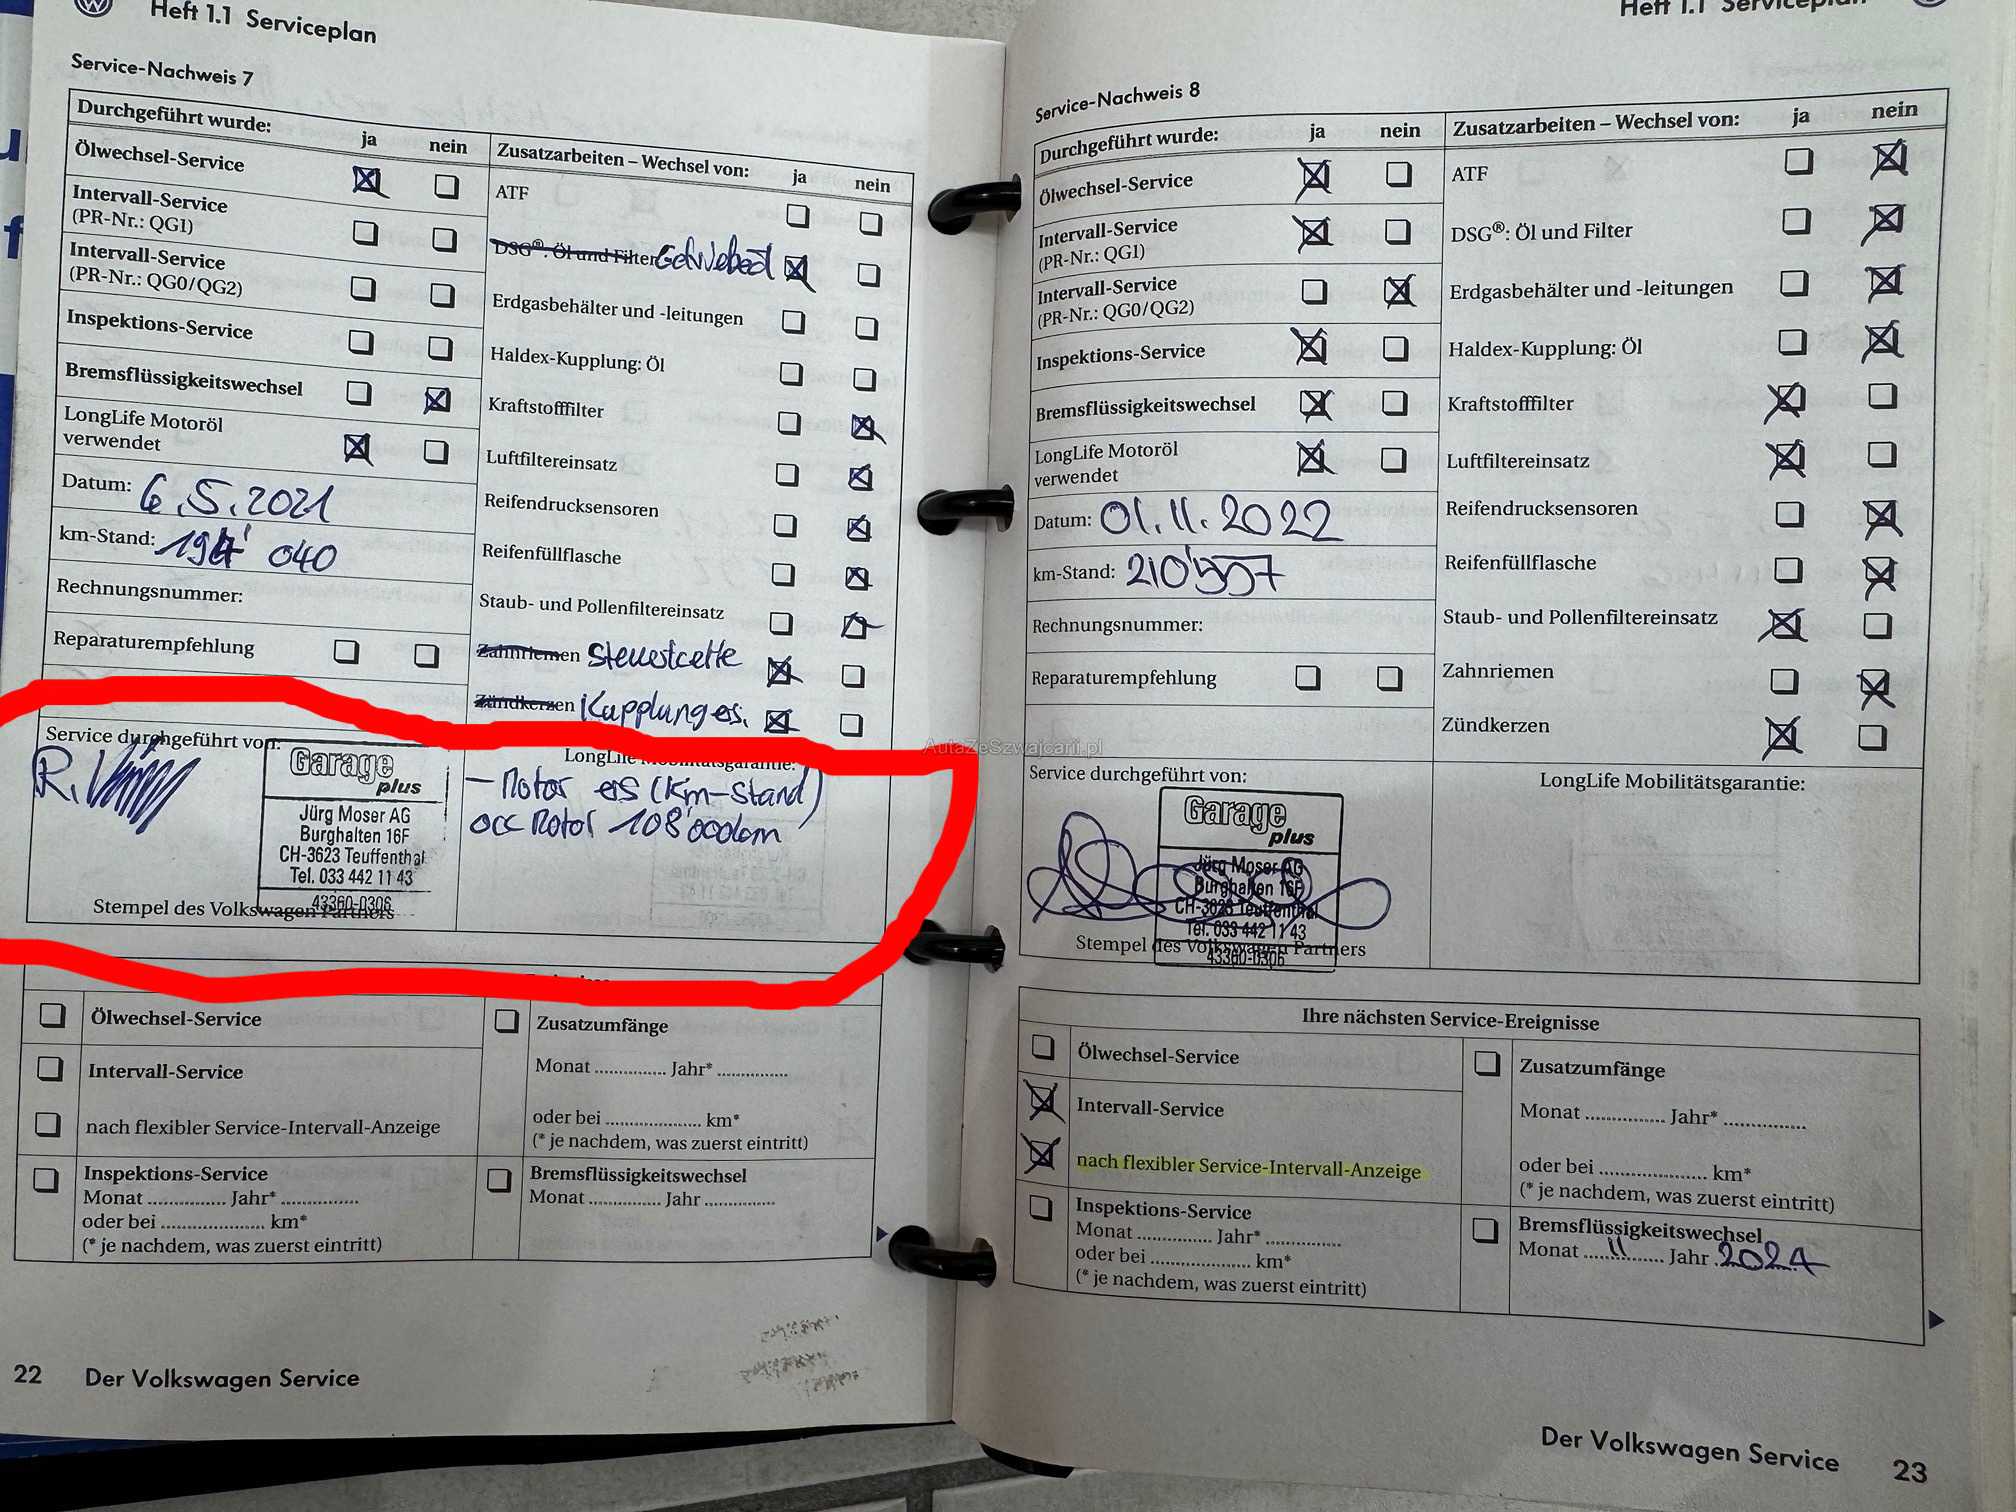 Heft 1.1 Serviceplan
Service-Nachweis 7
Durchgeführt wurde: ja nein
Ölwechsel-Service
Intervall-Service
(PR-Nr.: QG1)
Intervall-Service
(PR-Nr.: QG0/QG2)
Inspektions-Service
Bremsflüssigkeitswechsel
LongLife Motoröl
verwendet
Datum: 6.5.2021
km-Stand: 040
Rechnungsnummer:
Reparaturempfehlung
Zusatzarbeiten – Wechsel von: ja nein
ATF
DSG®: Öl und Filter
Erdgasbehälter und -leitungen
Haldex-Kupplung: Öl
Kraftstofffilter
Luftfiltereinsatz
Reifendrucksensoren
Reifenfüllflasche
Staub- und Pollenfiltereinsatz
Zahnriemen
Zündkerzen Kupplung ers.
Service durchgeführt von:
R.
Garage
plus
Jürg Moser AG
Burghalten 16F
CH-3623 Teuffenthal
Tel. 033 442 11 43
43360-0306
Stempel des Volkswagen Partners
LongLife Mobilitätsgarantie:
- Motor ers (Km-Stand)
occ Motor 108'000km
Ölwechsel-Service
Intervall-Service
nach flexibler Service-Intervall-Anzeige
Inspektions-Service
Monat Jahr*
oder bei km*
(* je nachdem, was zuerst eintritt)
Zusatzumfänge
Monat Jahr*
oder bei km*
(* je nachdem, was zuerst eintritt)
Bremsflüssigkeitswechsel
Monat Jahr
22 Der Volkswagen Service
Heft 1.1 Serviceplan
Service-Nachweis 8
Durchgeführt wurde: ja nein
Ölwechsel-Service
Intervall-Service
(PR-Nr.: QG1)
Intervall-Service
(PR-Nr.: QG0/QG2)
Inspektions-Service
Bremsflüssigkeitswechsel
LongLife Motoröl
verwendet
Datum: 01.11.2022
km-Stand: 210'557
Rechnungsnummer:
Reparaturempfehlung
Zusatzarbeiten – Wechsel von: ja nein
ATF
DSG®: Öl und Filter
Erdgasbehälter und -leitungen
Haldex-Kupplung: Öl
Kraftstofffilter
Luftfiltereinsatz
Reifendrucksensoren
Reifenfüllflasche
Staub- und Pollenfiltereinsatz
Zahnriemen
Zündkerzen
AutaZeSzwajcarii.pl
Service durchgeführt von:
Garage
plus
Jürg Moser AG
Burghalten 16F
CH-3623 Teuffenthal
Tel. 033 442 11 43
43360-0306
Stempel des Volkswagen Partners
LongLife Mobilitätsgarantie:
Ihre nächsten Service-Ereignisse
Ölwechsel-Service
Intervall-Service
nach flexibler Service-Intervall-Anzeige
Inspektions-Service
Monat Jahr*
oder bei km*
(* je nachdem, was zuerst eintritt)
Zusatzumfänge
Monat Jahr*
oder bei km*
(* je nachdem, was zuerst eintritt)
Bremsflüssigkeitswechsel
Monat 11 Jahr 2024
Der Volkswagen Service 23